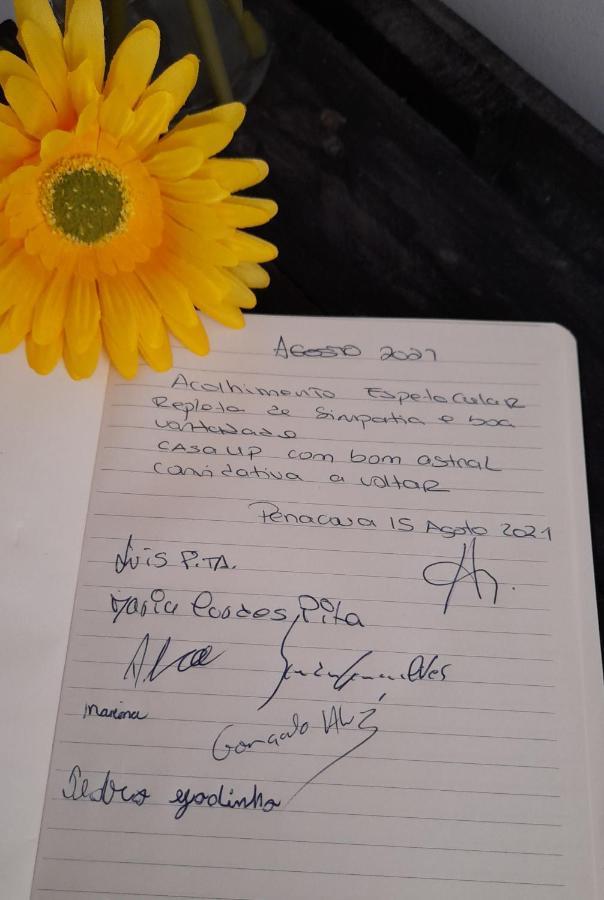 Agosto 2021
Acolhimento Espetacular
Repleto de Simpatia e boa
vontade
CASA UP com bom astral
convidativa a voltar
Penacova 15 Agosto 2021
Luis PITA.
Maria Lurdes Pita
Alves
Marina
Gonçalo
Pedro godinho